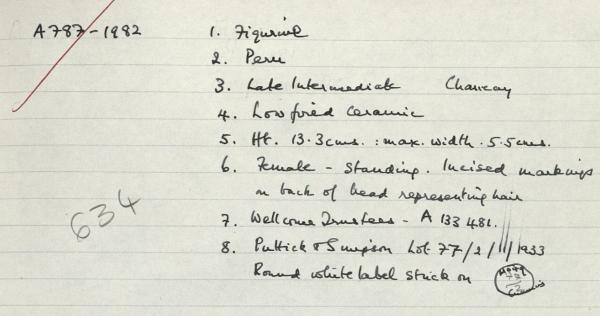 A787-1982
1. Figurine
2. Peru
3. Late Intermediate Chancay
4. Low fired ceramic
5. Ht. 13.3cms. : max. width. 5.5cms.
6. Female - Standing. Incised markings
on back of head representing hair
634
7. Wellcome Trustees - A 133 481.
8. Puttick & Simpson Lot 77/2/11/1933
Round white label stuck on